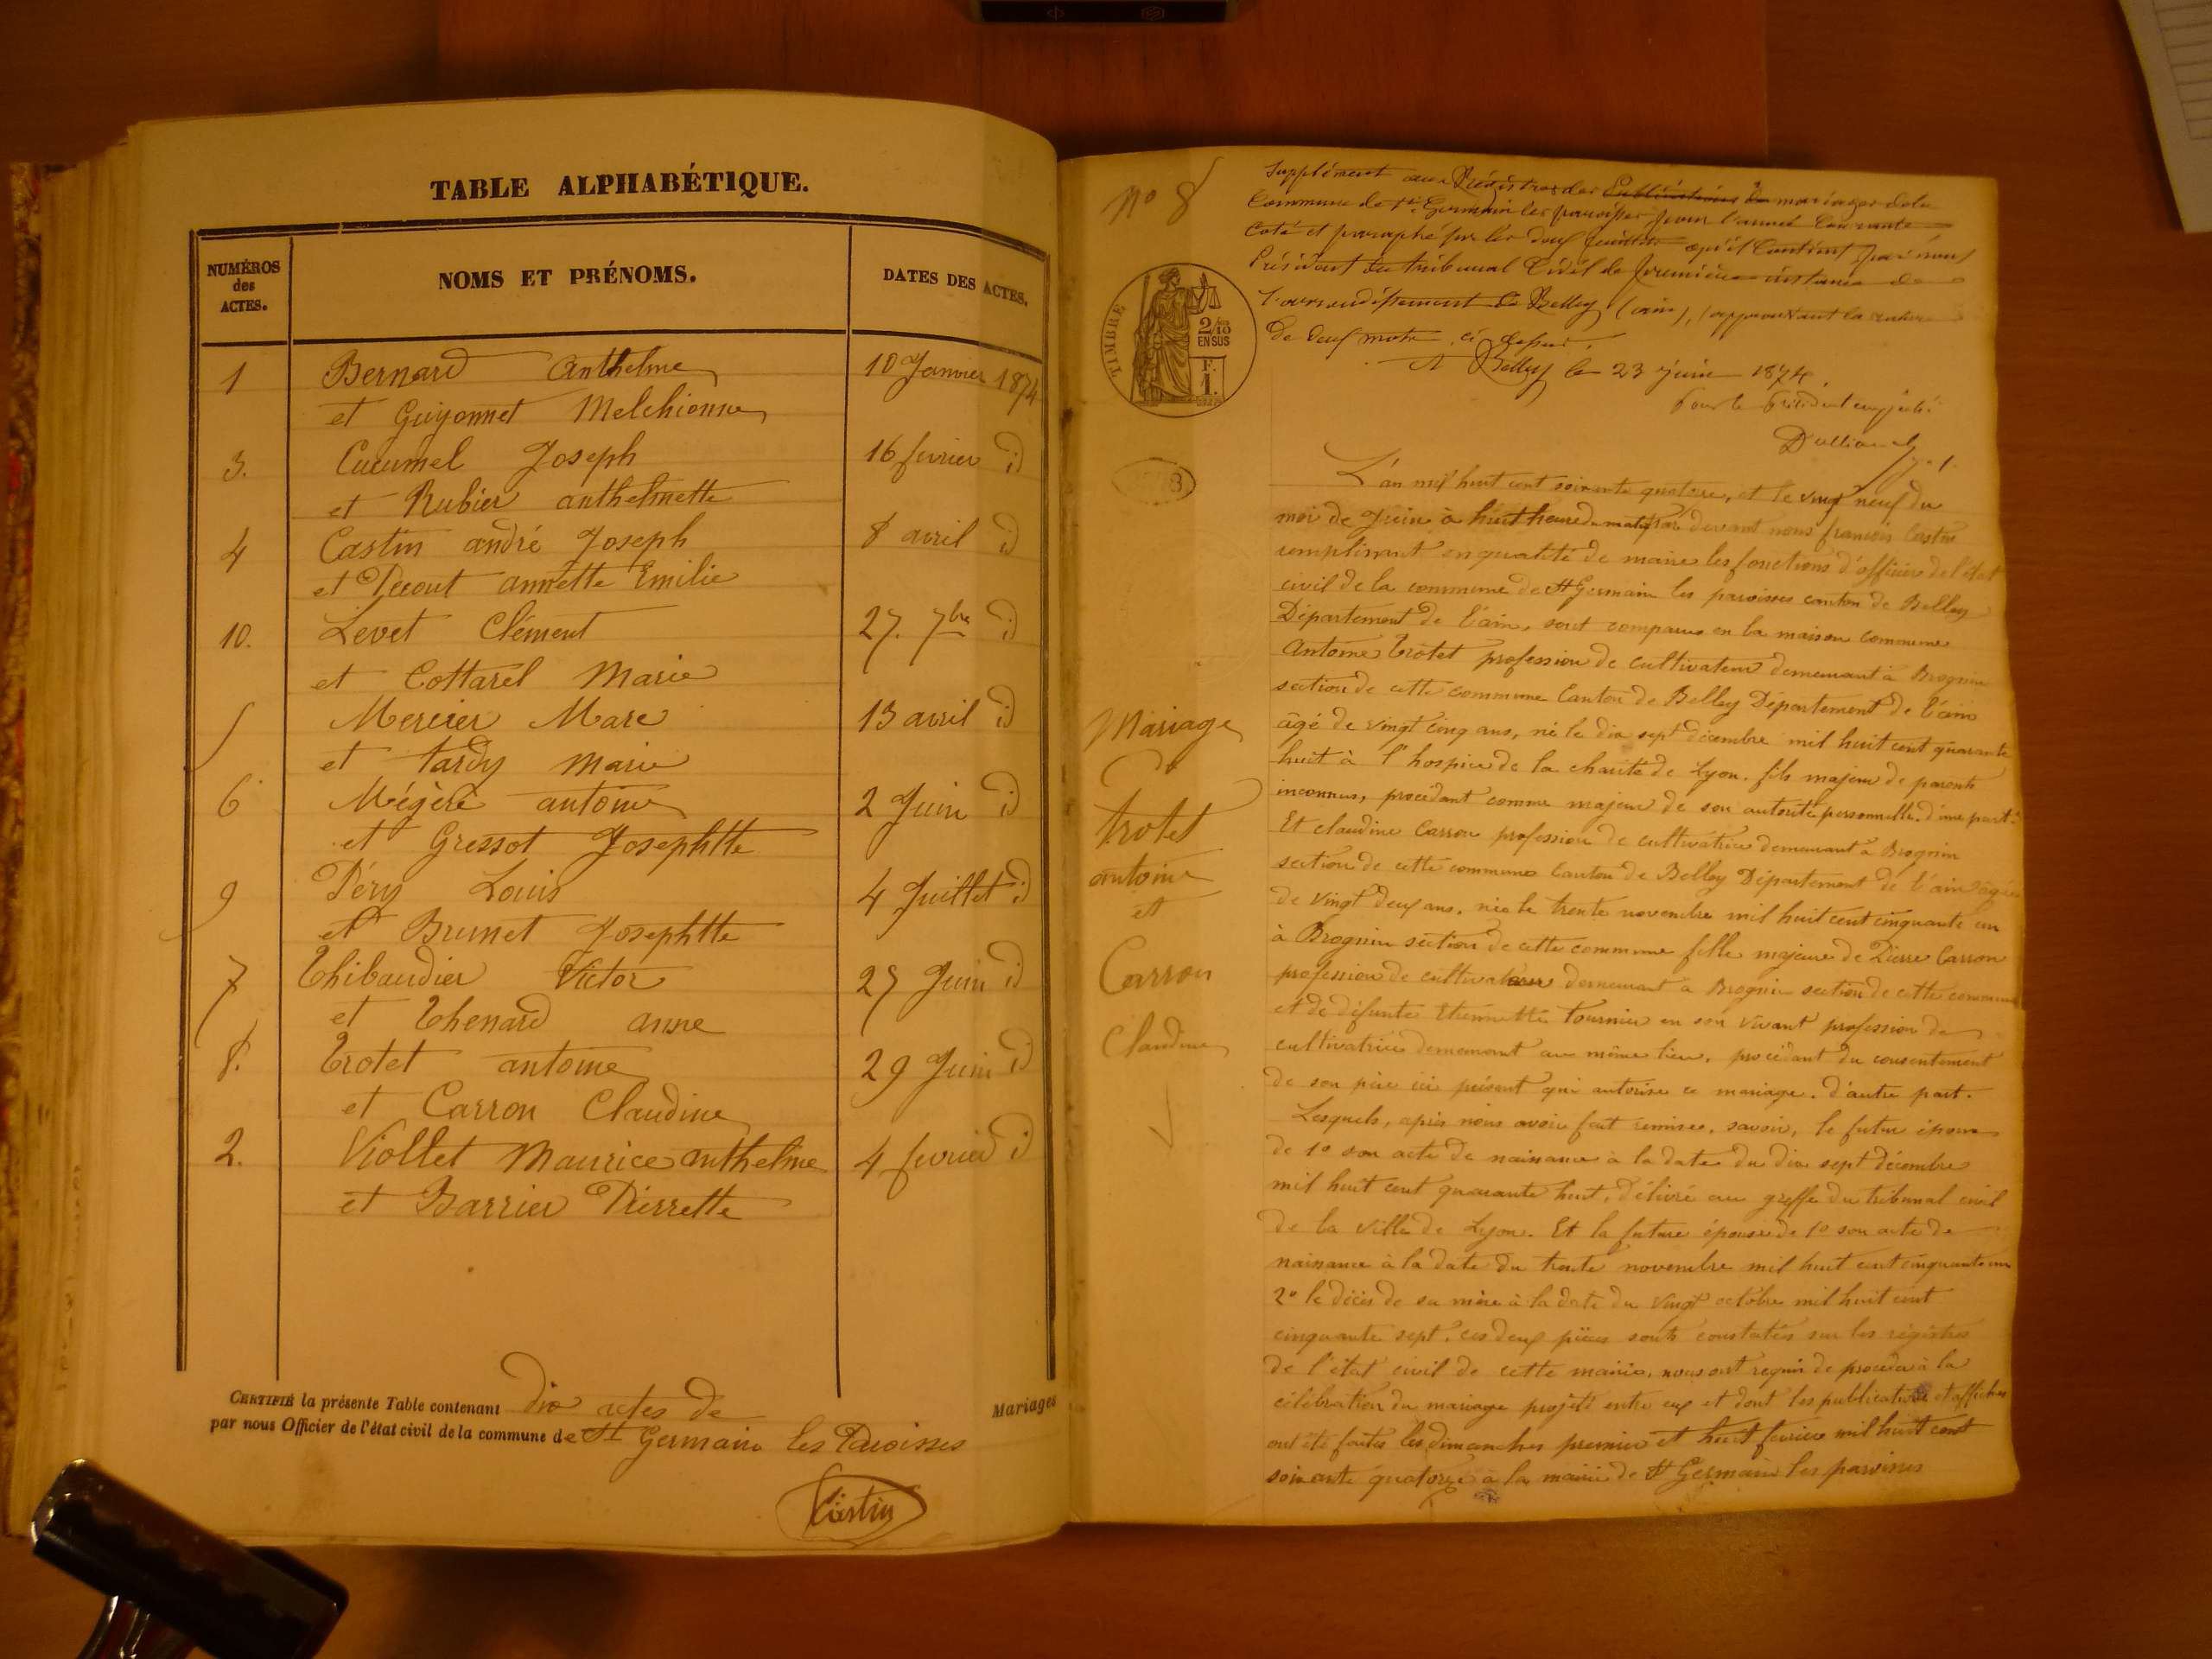 TABLE ALPHABÉTIQUE.
NUMÉROS des ACTES. NOMS ET PRÉNOMS. DATES DES ACTES.
1 Bernard Anthelme 10 Janvier 1874
et Guyonnet Melchionne
3. Cucumel Joseph 16 fevrier id
et Rubier anthelmette
4 Castin andré Joseph 8 avril id
et Decout annette Emilie
10. Levet Clément 27. 7bre id
et Cottarel Marie
5 Mercier Marc 13 avril id
et tardy Marie
6 Mégère antoine 2 Juin id
et Gressot Josephtte
9 Péry Louis 4 Juillet id
et Brunet Josephtte
7 Thibaudier Victor 27 Juin id
et Thenard anne
8. Trotet antoine 29 Juin id
et Carron Claudine
2. Viollet Maurice anthelme 4 fevrier id
et Barrier Pierrette
CERTIFIÉ la présente Table contenant dix actes de
par nous Officier de l'état civil de la commune de St Germain les Paroisses
Mariages
Castin
No 8
Supplément aux Régistres des Publications de mariages de la
Commune de St Germain les paroisses pour l'année Courante
Coté et paraphé sur les deux feuillets qu'il Contient, par nous
Président du tribunal Civil de première instance de
l'arrondissement de Belley (ain), approuvant la rature
de deux mots ci dessus.
A Belley le 23 juin 1874.
Pour le Président empêché
TIMBRE
2/10 EN SUS
F. 1.
Mariage
De
trotet
antoine
et
Carron
Claudine
L'an mil huit cent soixante quatorze, et le vingt neuf du
moi de Juin à huit heure du matin par devant nous francois Castin
remplissant en qualité de maire les fonctions d'officier de l'état
civil de la commune de St Germain les paroisses canton de Belley
Département de l'ain, sont comparus en la maison commune
Antoine Trotet profession de cultivateur demeurant à Brognin
section de cette commune Canton de Belley Département de l'ain
âgé de vingt cinq ans, né le dix sept décembre mil huit cent quarante
huit à l'hospice de la charité de Lyon. fils majeur de parents
inconnus, procédant comme majeur de son autorité personnelle. d'une part.
Et claudine Carron profession de cultivatrice demeurant à Brognin
section de cette commune Canton de Belley Département de l'ain âgée
de vingt deux ans, née le trente novembre mil huit cent cinquante un
à Brognin section de cette commune fille majeure de Pierre Carron
profession de cultivateur demeurant a Brognin section de cette commune
et de défunte Etiennette Tournier en son vivant profession de
cultivatrice demeurant au même lieu, procédant du consentement
de son père ici présent qui autorise ce mariage. d'autre part.
Lesquels, après nous avoir fait remise, savoir, le futur époux
de 1o son acte de naissance à la date du dix sept décembre
mil huit cent quarante huit, délivré au greffe du tribunal civil
de la ville de Lyon. Et la future épouse de 1o son acte de
naissance à la date du trente novembre mil huit cent cinquante un
2o le décès de sa mère à la date du vingt octobre mil huit cent
cinquante sept. ces deux pièces sont constatés sur les régistres
de l'état civil de cette mairie, nous ont requis de procéder à la
célébration du mariage projeté entre eux et dont les publications et affiches
ont été faites les dimanches premier et huit fevrier mil huit cent
soixante quatorze à la mairie de St Germain les paroisses